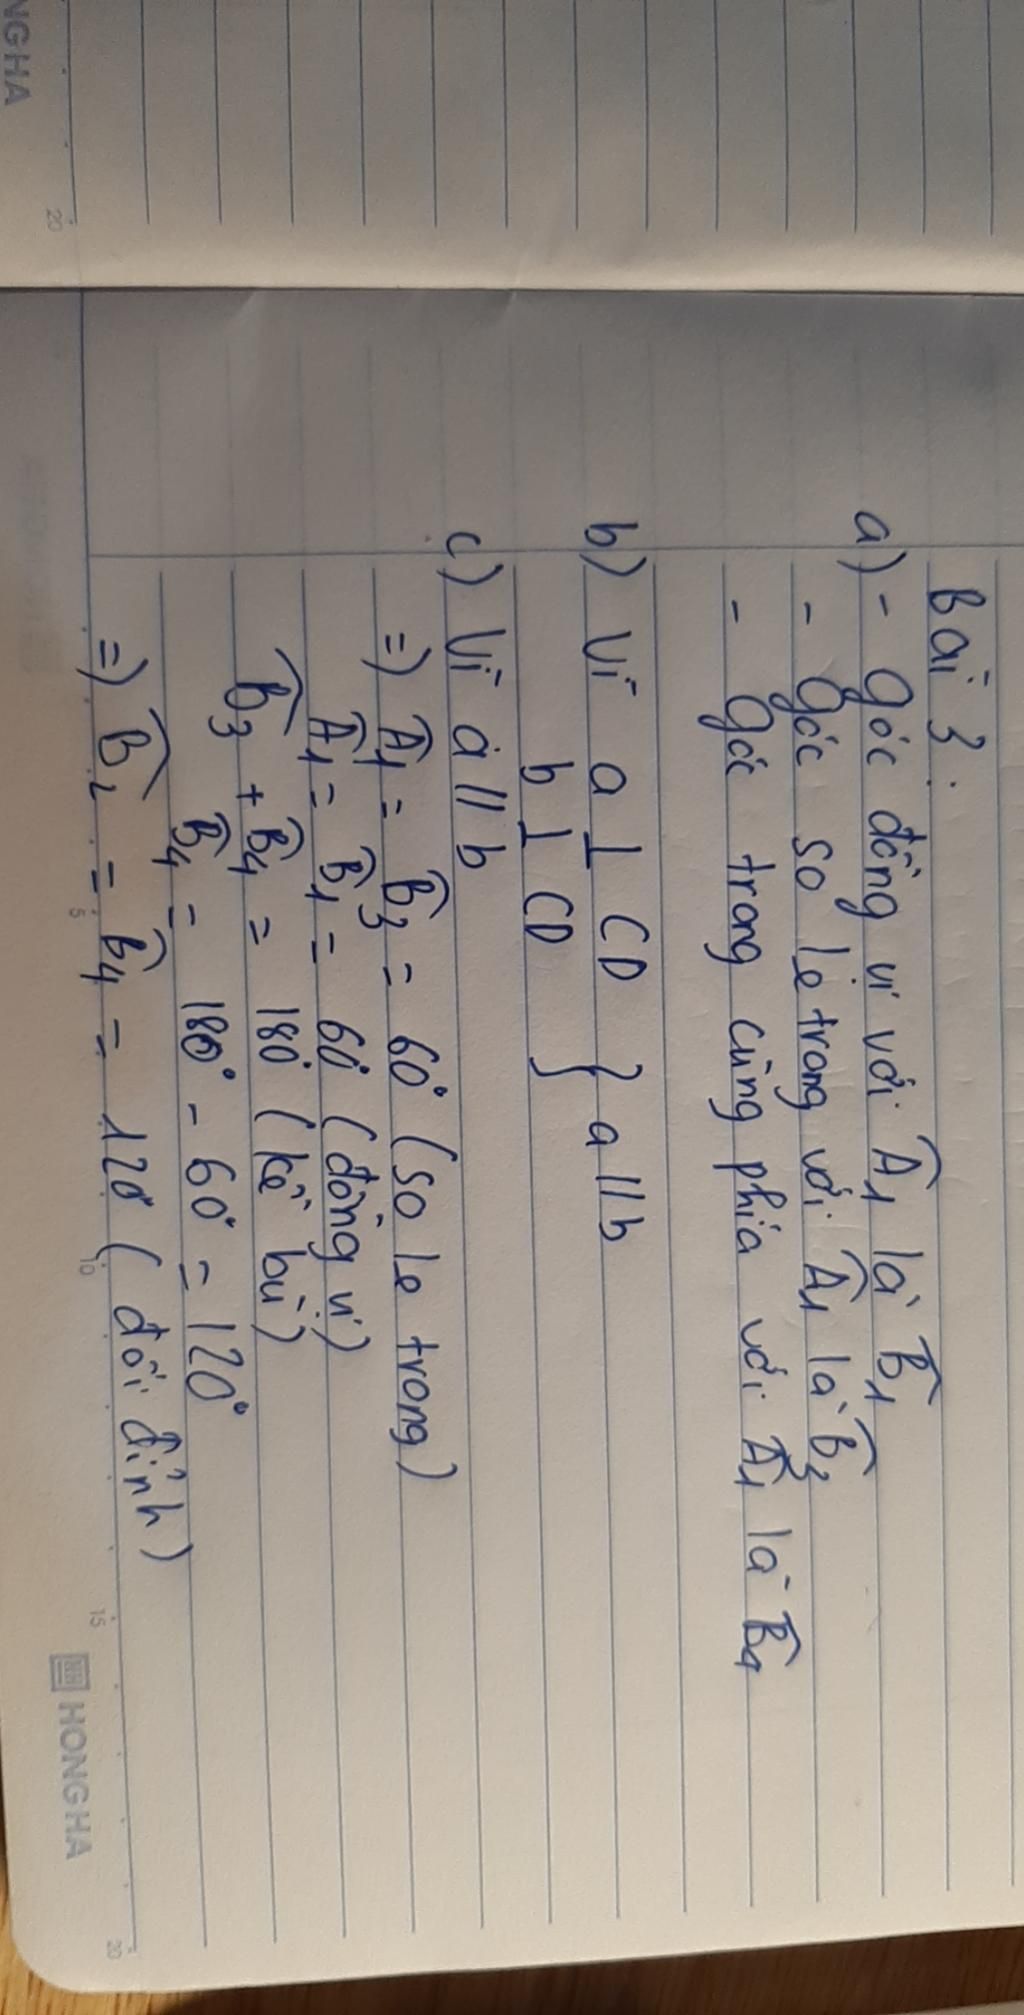 Bài 3:
a) - góc đồng vị với Â1 là B̂1
- góc so le trong với Â1 là B̂3
- góc trong cùng phía với Â1 là B̂4
b) Vì a ⊥ CD
b ⊥ CD } a // b
c) Vì a // b
=) Â1 = B̂3 = 60° (so le trong)
Â1 = B̂1 = 60° (đồng vị)
B̂3 + B̂4 = 180° (kề bù)
B̂4 = 180° - 60° = 120°
=) B̂2 = B̂4 = 120° (đối đỉnh)
NGHA
20
5
10
15
20
HONG HA